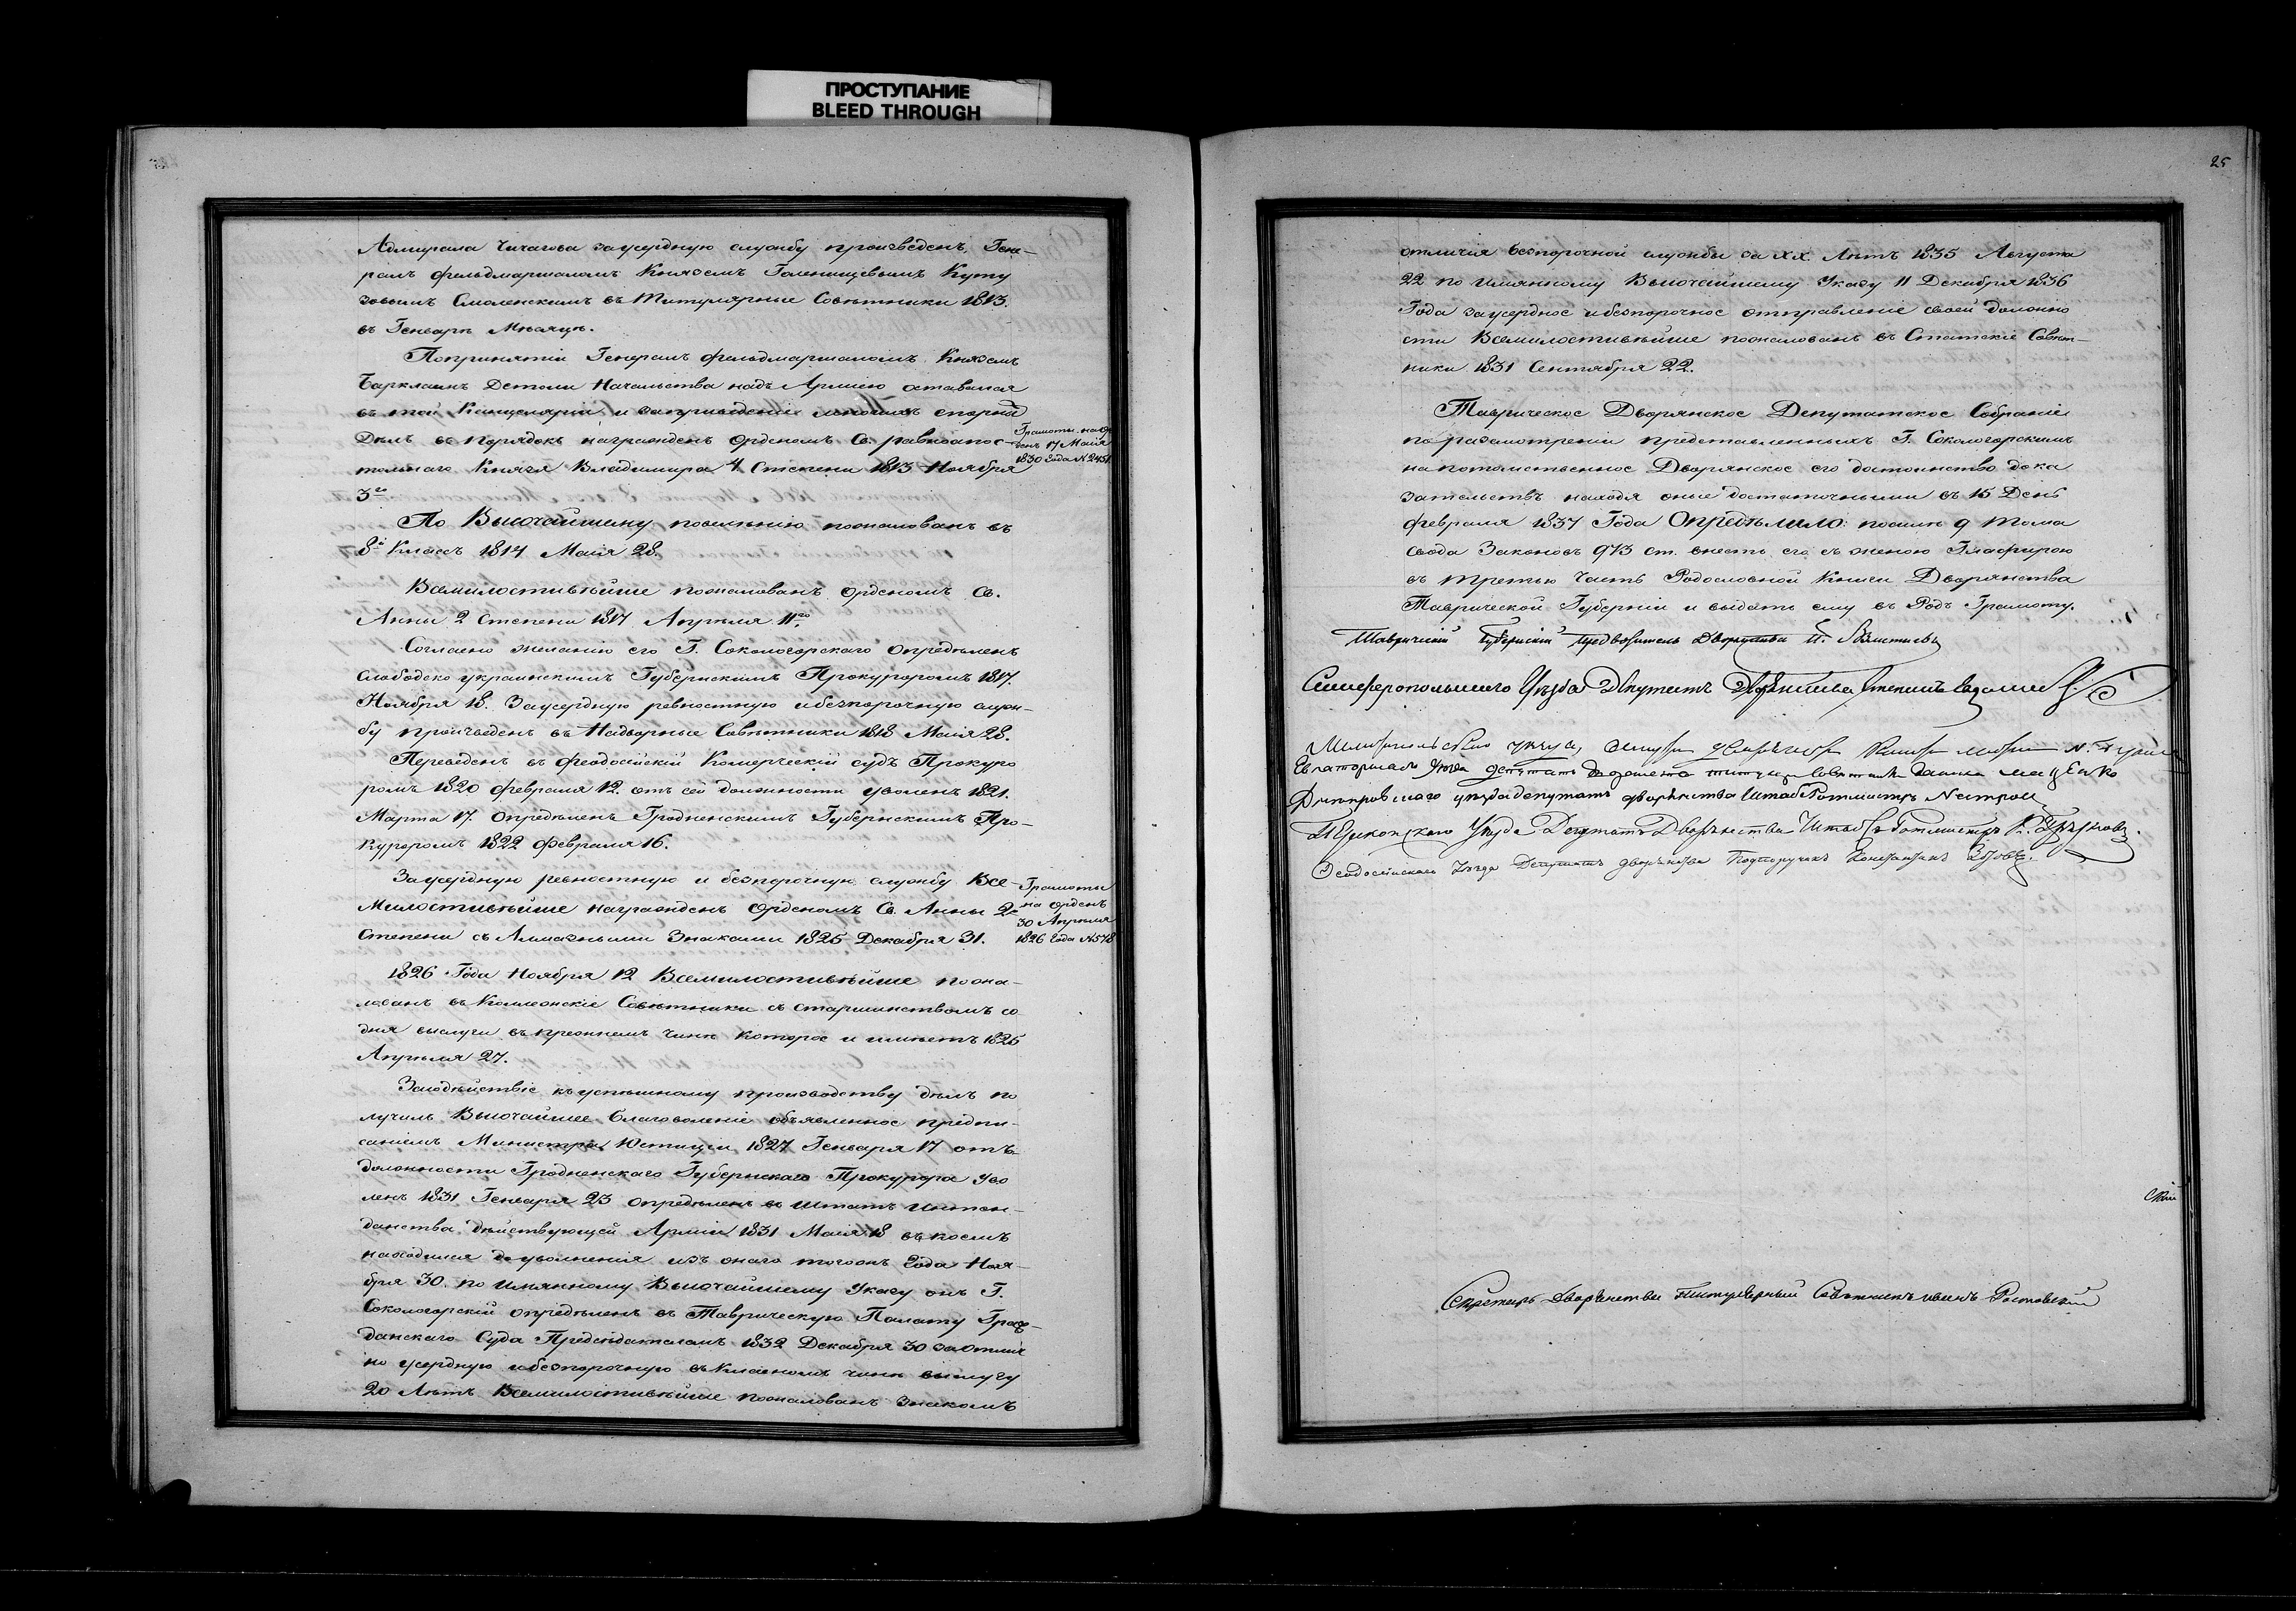 ПРОСТУПАНИЕ
BLEED THROUGH
Адмирала Чичагова за усердную службу произведенъ Гене-
ралъ фельдмаршаломъ Княземъ Голенищевымъ Куту
зовымъ Смоленскимъ въ Титулярные Совѣтники 1813.
въ Генварѣ Мѣсяцѣ.
По принятіи Генералъ фельдмаршаломъ Княземъ
Барклаемъ Детоли Начальства надъ Арміею оставался
въ той Канцеляріи и за приведеніе многихъ спорныхъ
Дѣлъ въ порядокъ награжденъ Орденомъ Св. равноапос-
тольнаго Князя Владимира 4 Степени 1813 Ноября
3го
Грамоты на Ор
денъ 17 Маія
1830 Года N 2451.
По Высочайшему повелѣнію пожалованъ въ
8й Классъ 1814 Маія 28.
Всемилостивѣйше пожалованъ Орденомъ Св.
Анны 2 Степени 1817 Апрѣля 11го.
Согласно желанію его Г. Сокологорскаго Опредѣленъ
Слободско украинскимъ Губернскимъ Прокуроромъ 1817.
Ноября 18. За усердную ревностную и безпорочную служ-
бу произведенъ въ Надворные Совѣтники 1818 Маія 28.
Переведенъ въ Феодосійскій Комерческій судъ Прокуро
ромъ 1820 февраля 12. отъ сей должности уволенъ 1821.
Марта 17. Опредѣленъ Гродненскимъ Губернскимъ Про-
куроромъ 1822 февраля 16.
За усердную ревностную и безпорочную службу Все-
Милостивѣйше награжденъ Орденомъ Св. Анны 2й
Степени съ Алмазными Знаками 1825 Декабря 31.
Грамоты
на орденъ
30 Апрѣля
1826 Года N 578
1826 Года Ноября 12 Всемилостивѣйше пожа-
лованъ въ Коллежскіе Совѣтники съ старшинствомъ со
дня выслуги въ прежнемъ чинѣ которое и имѣетъ 1825
Апрѣля 27.
За содѣйствіе къ успѣшному производству дѣлъ по
лучилъ Высочайшее благоволеніе объявленное предпи-
саніемъ Министра Юстиціи 1827 Генваря 17 отъ
должности Гродненскаго Губернскаго Прокурора уво
ленъ 1831 Генваря 23 опредѣленъ въ Штатъ Интен-
данства дѣйствующей Арміи 1831 Маія 18 въ коемъ
находился до уволненія изъ онаго тогожъ Года Ноя-
бря 30. по Имянному Высочайшему Указу онъ Г.
Сокологорскій опредѣленъ въ Таврическую Палату Граж-
данскаго Суда Предсѣдателемъ 1832 Декабря 30 за Отлич
но усердную и безпорочную въ Класномъ чинѣ выслугу
20 Лѣтъ Всемилостивѣйше пожалованъ Знакомъ
25
отличія безпорочной службы за XX Лѣтъ 1835 Августа
22 по Имянному Высочайшему Указу 11 Декабря 1836
Года за усердное и безпорочное отправленіе своей должно
сти Всемилостивѣйше пожалованъ въ Статскіе Совѣт-
ники 1831 Сентября 22.
Таврическое Дворянское Депутатское Собраніе
по разсмотреніи представленныхъ Г. Сокологорскимъ
на потомственное Дворянское его достоинство дока
зательствъ находя оные достаточными въ 15 День
февраля 1837 Года Опредѣлило: по силѣ 9 тома
свода Законовъ 973 ст. внесть его съ женою Глафирою
въ третью Часть Родословной Книги Дворянства
Таврической Губерніи и выдать ему въ Родъ Грамоту.
Таврическій Губернскій предводитель Дворянства
Симферопольскаго Уѣзда Депутатъ Дворянства
Мелитопольскаго уѣзда
Евпаторійскаго Уѣзда депутатъ титулярный совѣтникъ
Днѣпровскаго уѣзда депутатъ дворянства Штабсъ Ротмистръ
Перекопскаго Уѣзда Депутатъ Дворянства Штабсъ Ротмистръ
Феодосійскаго Уѣзда Депутатъ дворянства Подпоручикъ Константинъ
Секретарь Дворянства Титулярный Совѣтникъ Ивнъ Ростовскій